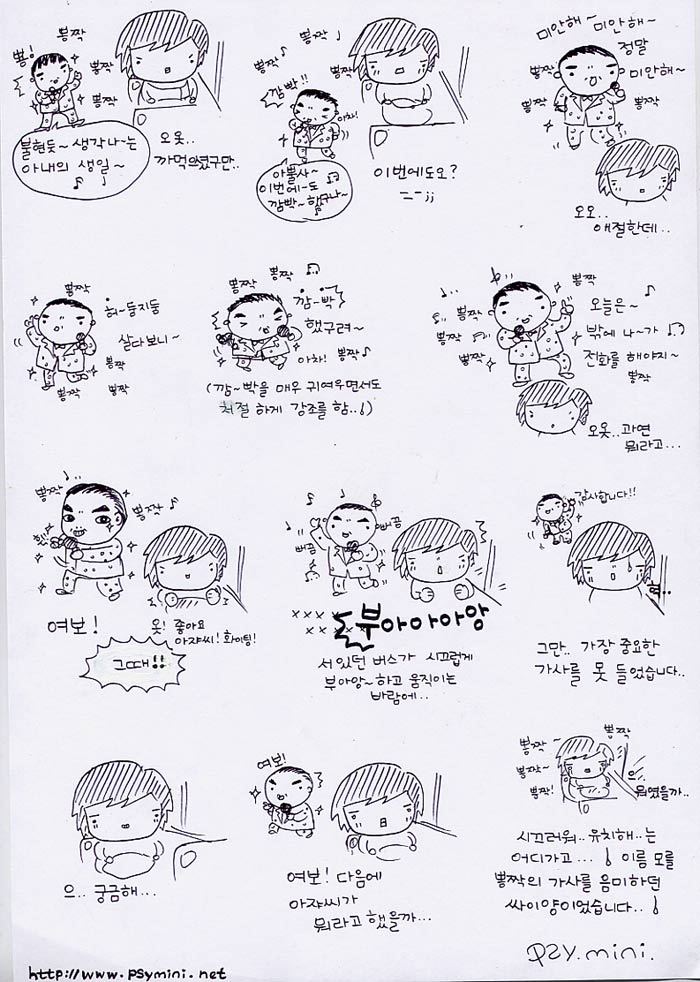 뽕!
뽕짝
뽕짝
뽕짝
뽕짝
불현듯~ 생각나~는
아내의 생일~
오옷..
까먹으셨구만..
뽕짝
뽕짝
뽕짝
뽕짝
깜빡!!
아차!
아뿔사~
이번에~도
깜빡~ 했구나~
이번에도오?
미안해~ 미안해~
정말
미안해~
뽕짝
뽕짝
뽕짝
오오..
애절한데..
뽕짝
허~둥지둥
살다보니~
뽕짝
뽕짝
뽕짝
뽕짝
뽕짝
깜~빡
했구려~
아차! 뽕짝
(깜~빡을 매우 귀여우면서도
처절 하게 강조를 함..!)
뽕짝
뽕짝
뽕짝
뽕짝
오늘은~
밖에 나~가
전화를 해야지~
뽕짝
오옷..과연
뭐라고...
뽕짝
뽕짝
여보!
옷! 좋아요
아쟈씨! 화이팅!
그때!!
빠꿍
빠꿍
××××
××××
부아아아앙
서있던 버스가 시끄럽게
부아앙~하고 움직이는
바람에..
감사합니다!!
그만.. 가장 중요한
가사를 못 들었습니다..
으.. 궁금해...
여보!
여보! 다음에
아쟈씨가
뭐라고 했을까...
뽕짝
뽕짝~
뽕짝~
뽕짝!
으..
뭐였을까..
시끄러워.. 유치해..는
어디가고...! 이름 모를
뽕짝의 가사를 음미하던
싸이양이었습니다..!
PSY.mini.
http://www.psymini.net